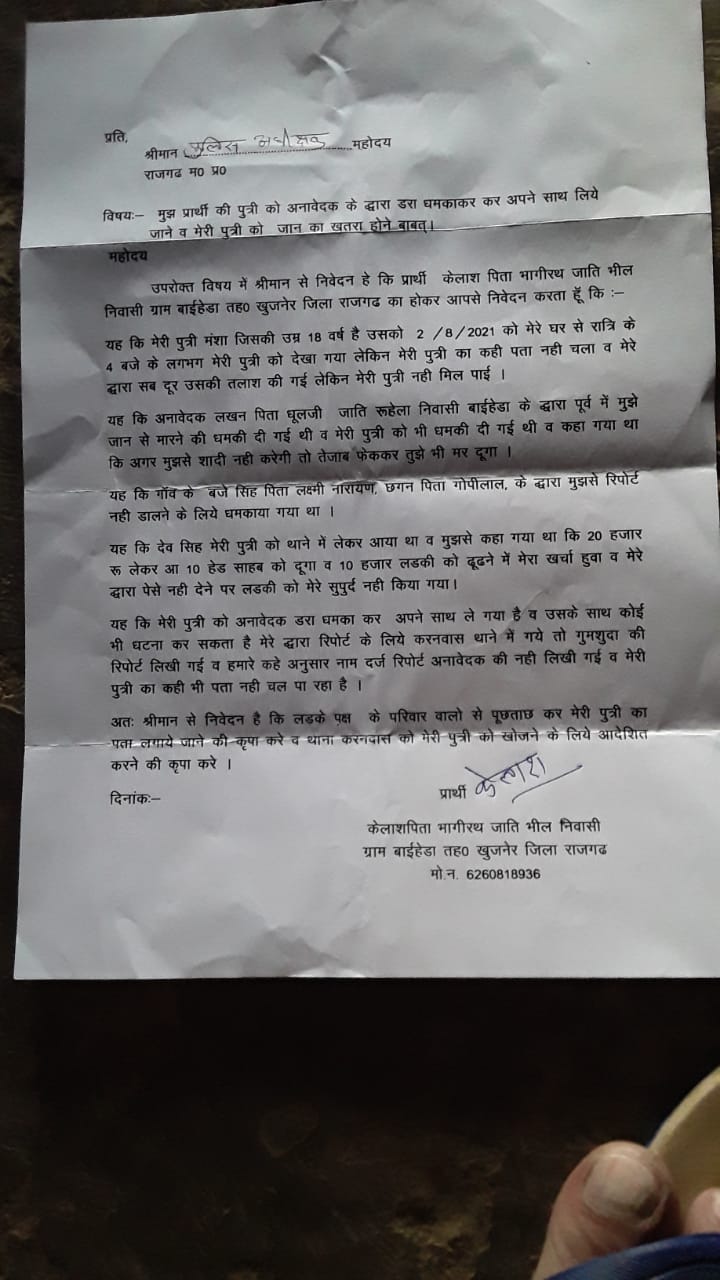 प्रति,
श्रीमान पुलिस अधीक्षक महोदय
राजगढ म0 प्र0
विषयः– मुझ प्रार्थी की पुत्री को अनावेदक के द्वारा डरा धमकाकर कर अपने साथ लिये
जाने व मेरी पुत्री को जान का खतरा होने बाबत्।
महोदय
उपरोक्त विषय में श्रीमान से निवेदन हे कि प्रार्थी केलाश पिता भागीरथ जाति भील
निवासी ग्राम बाईहेडा तह0 खुजनेर जिला राजगढ का होकर आपसे निवेदन करता हूॅं कि :–
यह कि मेरी पुत्री मंशा जिसकी उम्र 18 वर्ष है उसको 2 /8/2021 को मेरे घर से रात्रि के
4 बजे के लगभग मेरी पुत्री को देखा गया लेकिन मेरी पुत्री का कही पता नही चला व मेरे
द्वारा सब दूर उसकी तलाश की गई लेकिन मेरी पुत्री नही मिल पाई ।
यह कि अनावेदक लखन पिता धूलजी जाति रूहेला निवासी बाईहेडा के द्वारा पूर्व में मुझे
जान से मारने की धमकी दी गई थी व मेरी पुत्री को भी धमकी दी गई थी व कहा गया था
कि अगर मुझसे शादी नही करेगी तो तेजाब फेककर तुझे भी मर दूगा ।
यह कि गॉंव के बजे सिंह पिता लक्ष्मी नारायण, छगन पिता गोपीलाल, के द्वारा मुझसे रिपोर्ट
नही डालने के लिये धमकाया गया था ।
यह कि देव सिह मेरी पुत्री को थाने में लेकर आया था व मुझसे कहा गया था कि 20 हजार
रू लेकर आ 10 हेड साहब को दूगा व 10 हजार लडकी को ढूढने में मेरा खर्चा हुवा व मेरे
द्वारा पेसे नही देने पर लडकी को मेरे सुपुर्द नही किया गया।
यह कि मेरी पुत्री को अनावेदक डरा धमका कर अपने साथ ले गया है व उसके साथ कोई
भी घटना कर सकता है मेरे द्वारा रिपोर्ट के लिये करनवास थाने में गये तो गुमशुदा की
रिपोर्ट लिखी गई व हमारे कहे अनुसार नाम दर्ज रिपोर्ट अनावेदक की नही लिखी गई व मेरी
पुत्री का कही भी पता नही चल पा रहा है ।
अतः श्रीमान से निवेदन है कि लडके पक्ष के परिवार वालो से पूछताछ कर मेरी पुत्री का
पता लगाये जाने की कृपा करे व थाना करनवास को मेरी पुत्री को खोजने के लिये आदेशित
करने की कृपा करे ।
दिनांकः–
प्रार्थी केलाश
केलाशपिता भागीरथ जाति भील निवासी
ग्राम बाईहेडा तह0 खुजनेर जिला राजगढ
मो.न. 6260818936